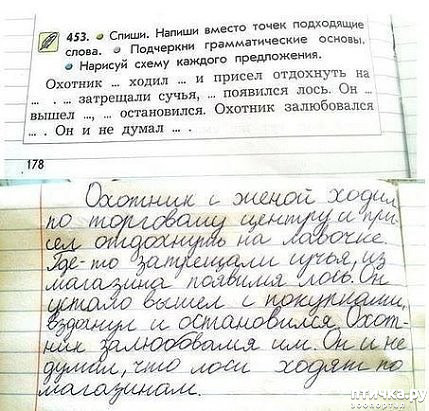 453. Спиши. Напиши вместо точек подходящие
слова. Подчеркни грамматические основы.
Нарисуй схему каждого предложения.
Охотник ... ходил ... и присел отдохнуть на
... . ... затрещали сучья, ... появился лось. Он ...
вышел ..., ... остановился. Охотник залюбовался
... . Он и не думал ... .
178
Охотник с женой ходил
по торговому центру и при-
сел отдохнуть на лавочке.
Где-то затрещали сучья, из
магазина появился лось. Он
устало вышел с покупками,
вздохнул и остановился. Охот-
ник залюбовался им. Он и не
думал, что лоси ходят по
магазинам.
птичка.ру
зоопортал